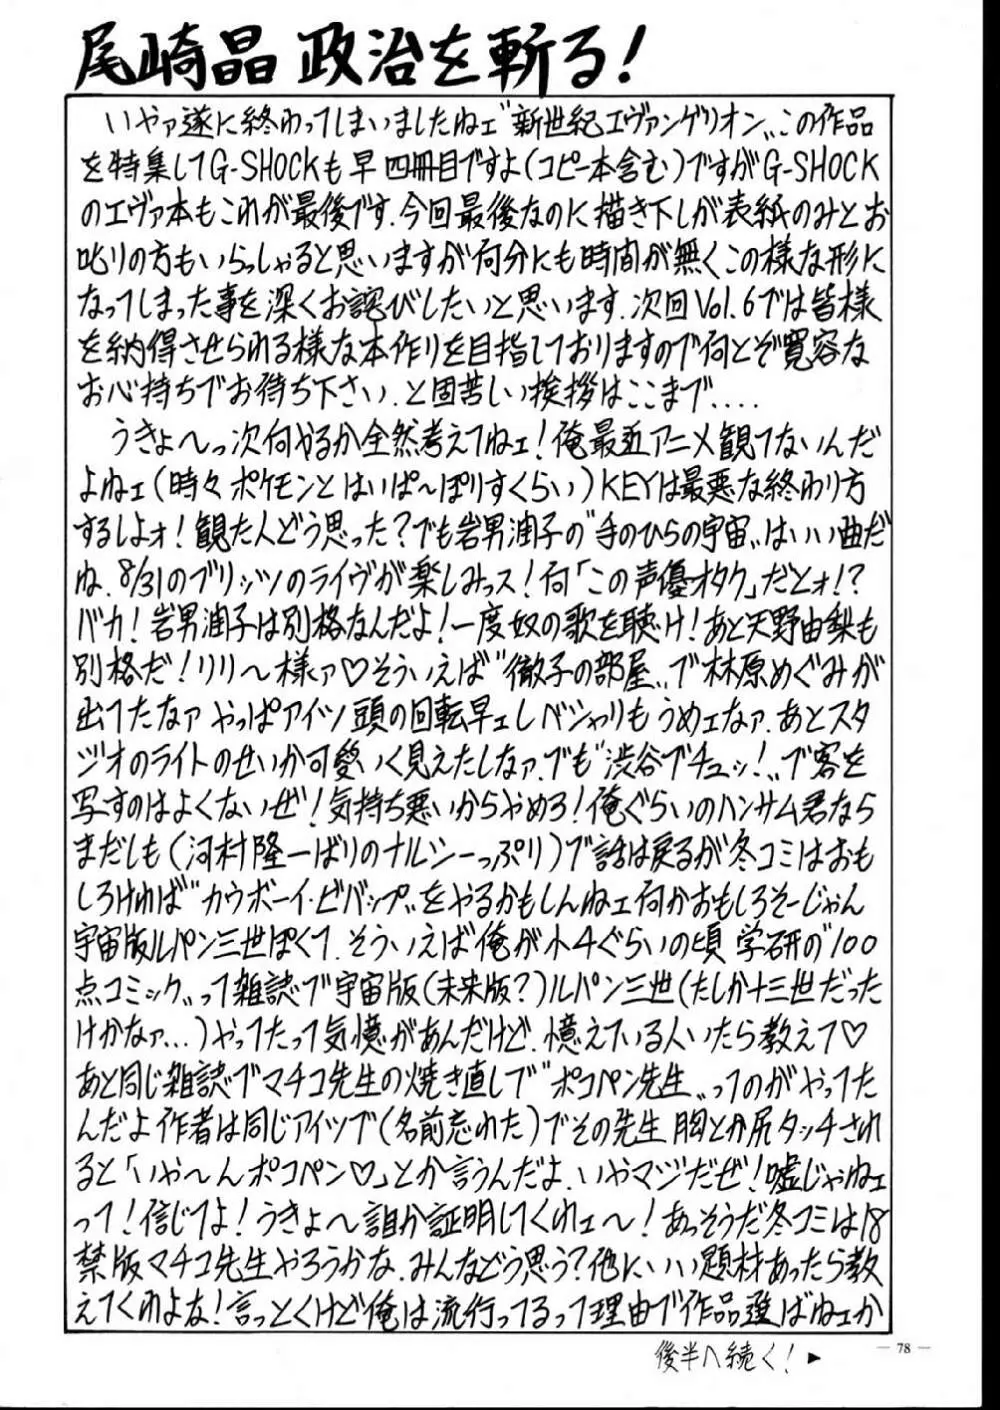 尾崎晶 政治を斬る!
いやァ遂に終わってしまいましたねェ"新世紀エヴァンゲリオン〟この作品
を特集してG-SHOCKも早四冊目ですよ(コピー本含む)ですがG-SHOCK
のエヴァ本もこれが最後です.今回最後なのに描き下しが表紙のみとお
叱りの方もいらっしゃると思いますが何分にも時間が無くこの様な形に
なってしまった事を深くお詫びしたいと思います.次回Vol.6では皆様
を納得させられる様な本作りを目指しておりますので何とぞ寛容な
お心持ちでお待ち下さい.と固苦しい挨拶はここまで....
うきょ〜っ次何やるか全然考えてねェ!俺最近アニメ観てないんだ
よねェ(時々ポケモンとはいぱ〜ぽりすくらい)KEYは最悪な終わり方
するしよォ!観た人どう思った?でも岩男潤子の"手のひらの宇宙〟はいい曲だ
ね.8/31のブリッツのライヴが楽しみっス!何「この声優オタク」だとォ!?
バカ!岩男潤子は別格なんだよ!一度奴の歌を聴け!あと天野由梨も
別格だ!リリ〜様ァ♡そういえば"徹子の部屋〟で林原めぐみが
出てたなァ やっぱアイツ頭の回転早ェしベシャリもうめェなァ.あとスタ
ジオのライトのせいか可愛いく見えたしなァ.でも"渋谷でチュッ!〟で客を
写すのはよくないぜ!気持ち悪いからやめろ!俺ぐらいのハンサム君なら
まだしも(河村隆一ばりのナルシーっぷり)で話は戻るが冬コミはおも
しろければ"カウボーイ・ビバップ〟をやるかもしんねェ何かおもしろそーじゃん
宇宙版ルパン三世ぽくて.そういえば俺が小4ぐらいの頃 学研の"100
点コミック〟って雑誌で宇宙版(未来版?)ルパン三世(たしか十三世だった
けかなァ...)やってたって気憶があんだけど.憶えている人いたら教えて♡
あと同じ雑誌でマチコ先生の焼き直しで"ポコペン先生〟ってのがやってた
んだよ作者は同じアイツで(名前忘れた)でその先生胸とか尻タッチされ
ると「いや〜んポコペン♡」とか言うんだよ.いやマジだぜ!嘘じゃねェ
って!信じてよ!うきょ〜誰か証明してくれェ〜!あっそうだ冬コミは18
禁版マチコ先生やろうかな.みんなどう思う?他にいい題材あったら教
えてくれよな!言っとくけど俺は流行ってるって理由で作品選ばねェか
後半へ続く!▶
— 78 —